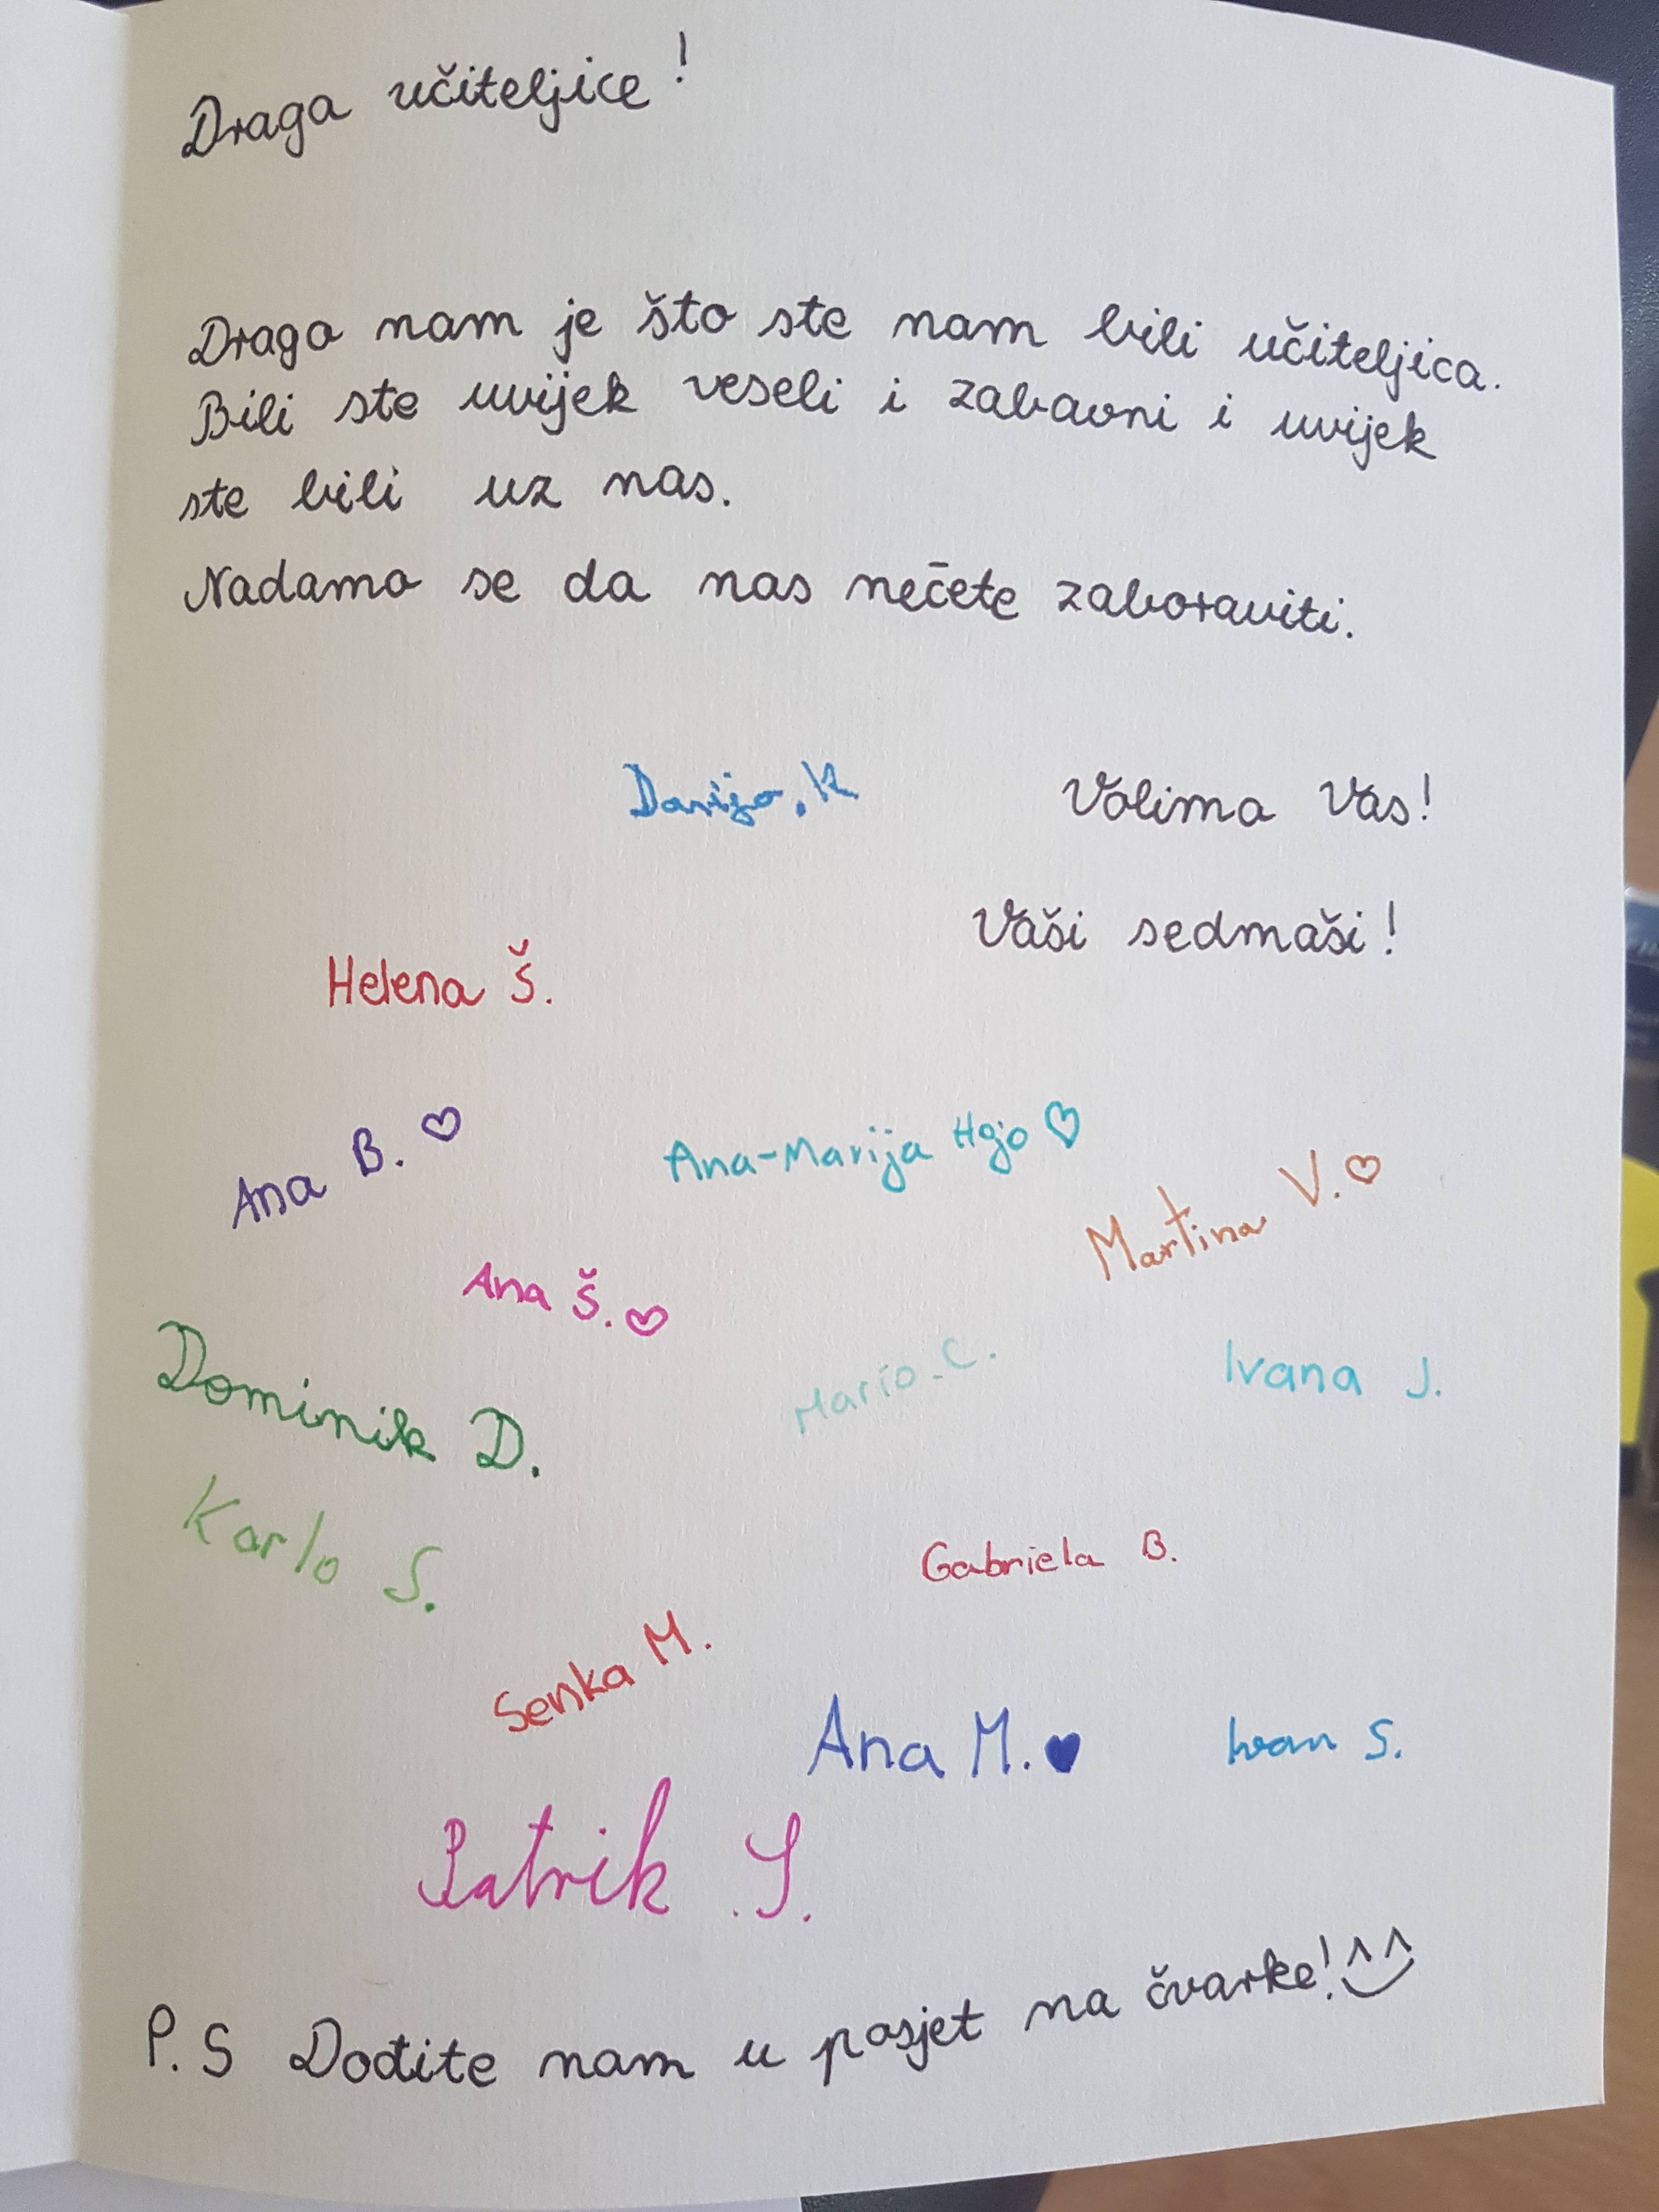 Draga učiteljice!
Drago nam je što ste nam bili učiteljica.
Bili ste uvijek veseli i zabavni i uvijek
ste bili uz nas.
Nadamo se da nas nečete zaboraviti.
K
Volimo Vas!
Vaši sedmaši!
Helena Š.
Ana B. ♡
Ana-Marija ♡
Martina V. ♡
Ana Š. ♡
Dominik D.
Mario. C.
Ivana J.
Karlo S.
Gabriela B.
Senka M.
Ana M. ♥
Ivan S.
Patrik .S.
P.S Dođite nam u posjet na čvarke! ^^